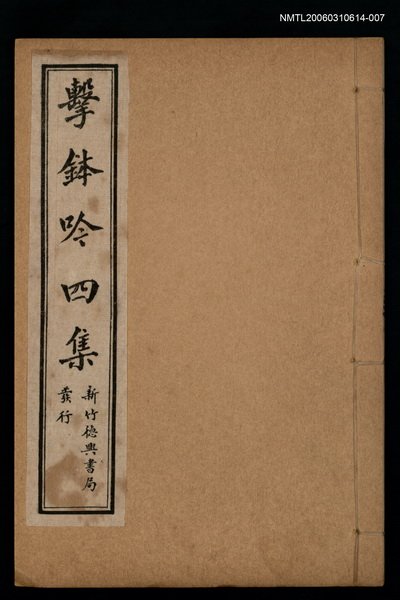 NMTL20060310614-007
擊鉢吟四集
新竹德興書局
發行